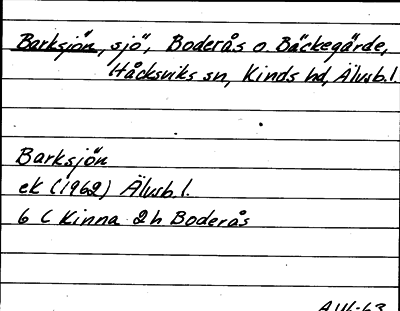 Barksjön, sjö, Boderås o. Bäckegärde,
Håcksviks sn, Kinds hd, Älvsb.l.
Barksjön
ek (1962) Älvsb.l.
6 C Kinna 2h Boderås